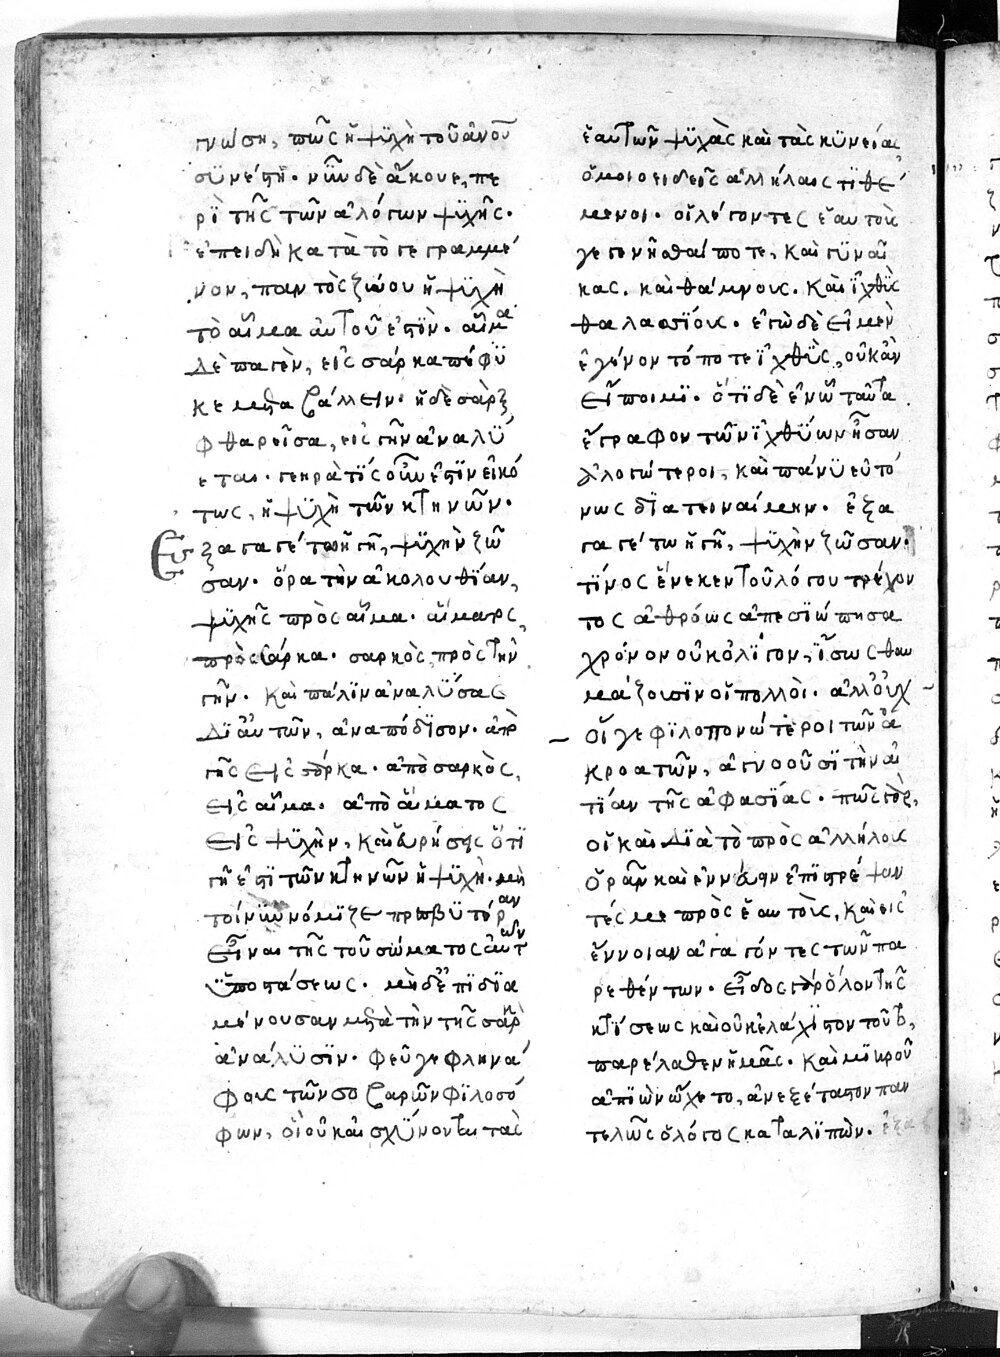 γνώση, πῶς ἡ ψϋχὴ τοῦ ἀνου
συνέστη. νῦν δὲ ἄκουε, πε
ρὶ τῆς τῶν ἀλόγων ψϋχῆς.
ἐπειδὴ κατὰ τὸ γεγραμμέ
νον, παντὸς ζώου ἡ ψϋχὴ
τὸ αἷμα αὐτοῦ ἐστϊν. αἷμα
δὲ παγὲν, εἰς σάρκα πέφϋ
κε μεταβάλλειν. ἡ δὲ σὰρξ
φθαρεῖσα, εἰς γῆν ἀναλϋ
εται. γεηρὰ τϊς οὖν ἐστϊν εἰκό
τως, ἡ ψϋχὴ τῶν κτηνῶν.
Εξαγαγέτω ἡ γῆ, ψϋχὴν ζῶ
σαν. ὅρα τὴν ἀκολουθΐαν,
ψϋχῆς πρὸς αἷμα. αἵματος
πρὸς σάρκα. σαρκὸς πρὸς τὴν
γῆν. καὶ πάλϊν ἀναλΰσας
δϊ αὐτῶν, ἀναπόδϊσον. ἀπὸ
γῆς εἰς σάρκα. ἀπὸ σαρκὸς,
εἰς αἷμα. ἀπὸ αἵματος
εἰς ψϋχὴν, καὶ εὑρήσεις ὅτϊ
γῆ ἐστϊ τῶν κτηνῶν ἡ ψϋχὴ. μὴ
τοίνϋν νόμϊζε πρεσβϋτέραν
εἶναι τῆς τοῦ σώματος αὐτῶν
ὑποστάσεως. μὴ δὲ ἐπϊδϊα
μένουσαν μετὰ τὴν τῆς σαρκὸς
ἀνάλϋσϊν. φεῦγε φληνά
φοις τῶν σοβαρῶν φϊλοσό
φων, οἳ οὐκ αἰσχΰνονται τὰς
ἑαυτῶν ψϋχὰς καὶ τὰς κϋνείας
ὁμοιοειδεῖς ἀλλήλαις τϊθέ
μενοι. οἱ λέγοντες ἑαυτοὺς
γεγενῆσθαί ποτε, καὶ γϋναῖ
κας. καὶ θάμνους. καὶ ἰχθϋς
θαλασσΐους. ἐγὼ δὲ εἰ μὲν
ἐγένοντό ποτε ἰχθϋς, οὐκ ἂν
εἴποιμϊ. ὅτϊ δὲ ἐν ᾧ ταῦτα
ἔγραφον τῶν ἰχθΰων ἦσαν
ἀλογώτεροι, καὶ πάνϋ εὐτό
νως δϊατειναίμην. ἐξα
γαγέτω ἡ γῆ, ψϋχὴν ζῶσαν.
τΐνος ἕνεκεν τοῦ λόγου τρέχον
τος ἀθρόως ἀπεσϊώπησα
χρόνον οὐκ ὀλΐγον, ἴσως θαυ
μάζουσϊν οἱ πολλοὶ. ἀλλ' οὐχ
οἵ γε φϊλοπονώτεροι τῶν ἀ
κροατῶν, ἀγνοοῦσϊ τὴν αἰ
τΐαν τῆς ἀφασΐας. πῶς γάρ,
οἳ καὶ δϊὰ τὸ πρὸς ἀλλήλους
ὁρᾶν καὶ ἐννεύειν ἐπϊστρέψαν
τές με πρὸς ἑαυτοὺς, καὶ εἰς
ἔννοιαν ἀγαγόντες τῶν πα
ρεθέντων. εἶδος γὰρ ὅλον τῆς
κτΐσεως καὶ οὐκ ἐλάχϊστον τοῦτο,
παρέλαθεν ἡμᾶς. καὶ μϊκροῦ
ἀπϊὼν ᾤχετο, ἀνεξέταστον παν
τελῶς ὁ λόγος καταλϊπὼν.